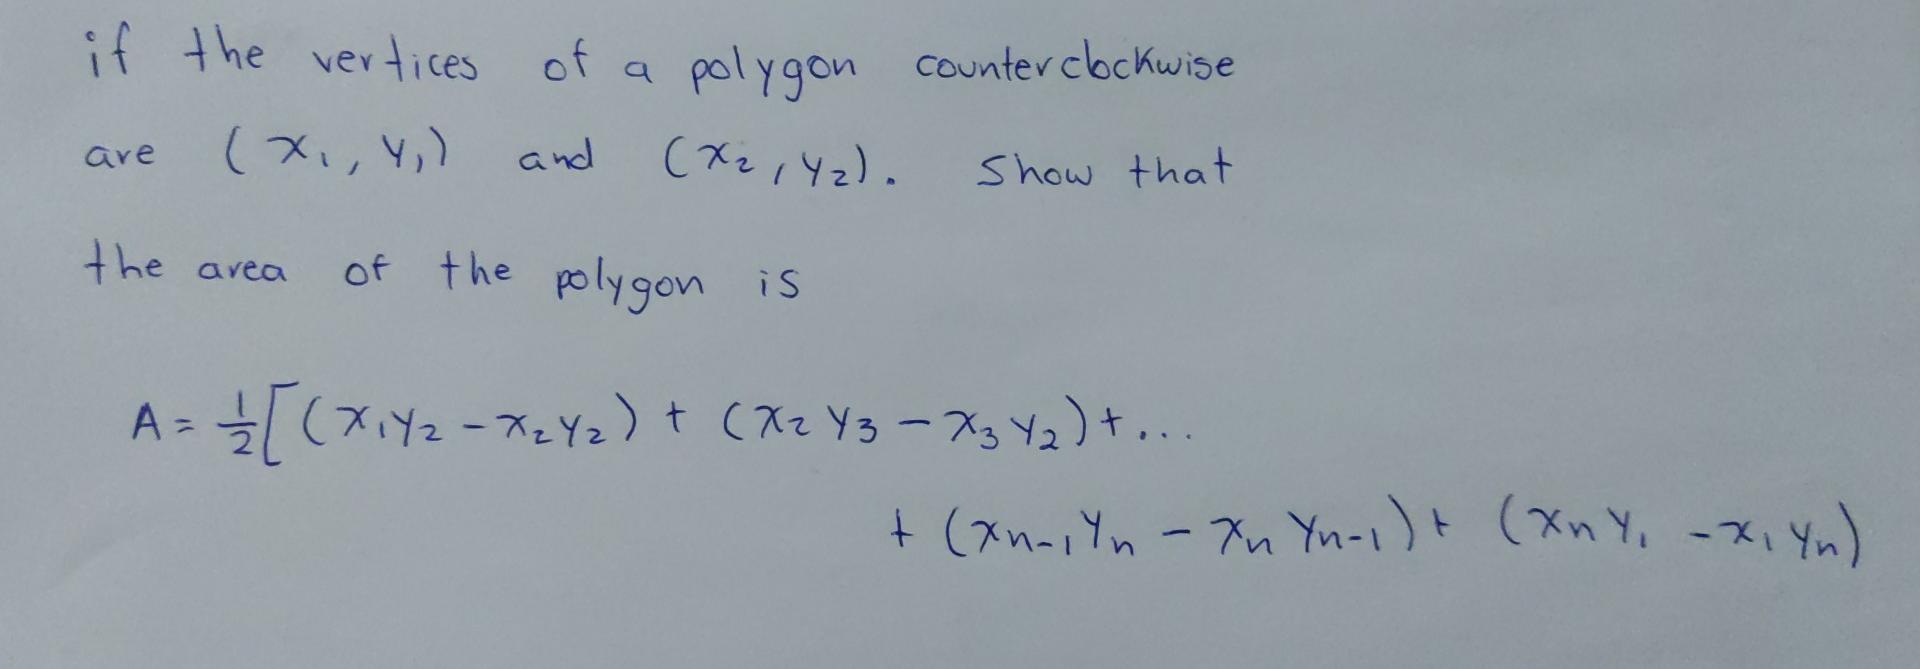 if the vertices of a polygon counterclockwise
are (x₁, y₁) and (x₂, y₂). Show that
the area of the polygon is
A = ½[(x₁y₂ - x₂y₂) + (x₂y₃ - x₃y₂) + ...
+ (xₙ₋₁yₙ - xₙyₙ₋₁) + (xₙy₁ - x₁yₙ)